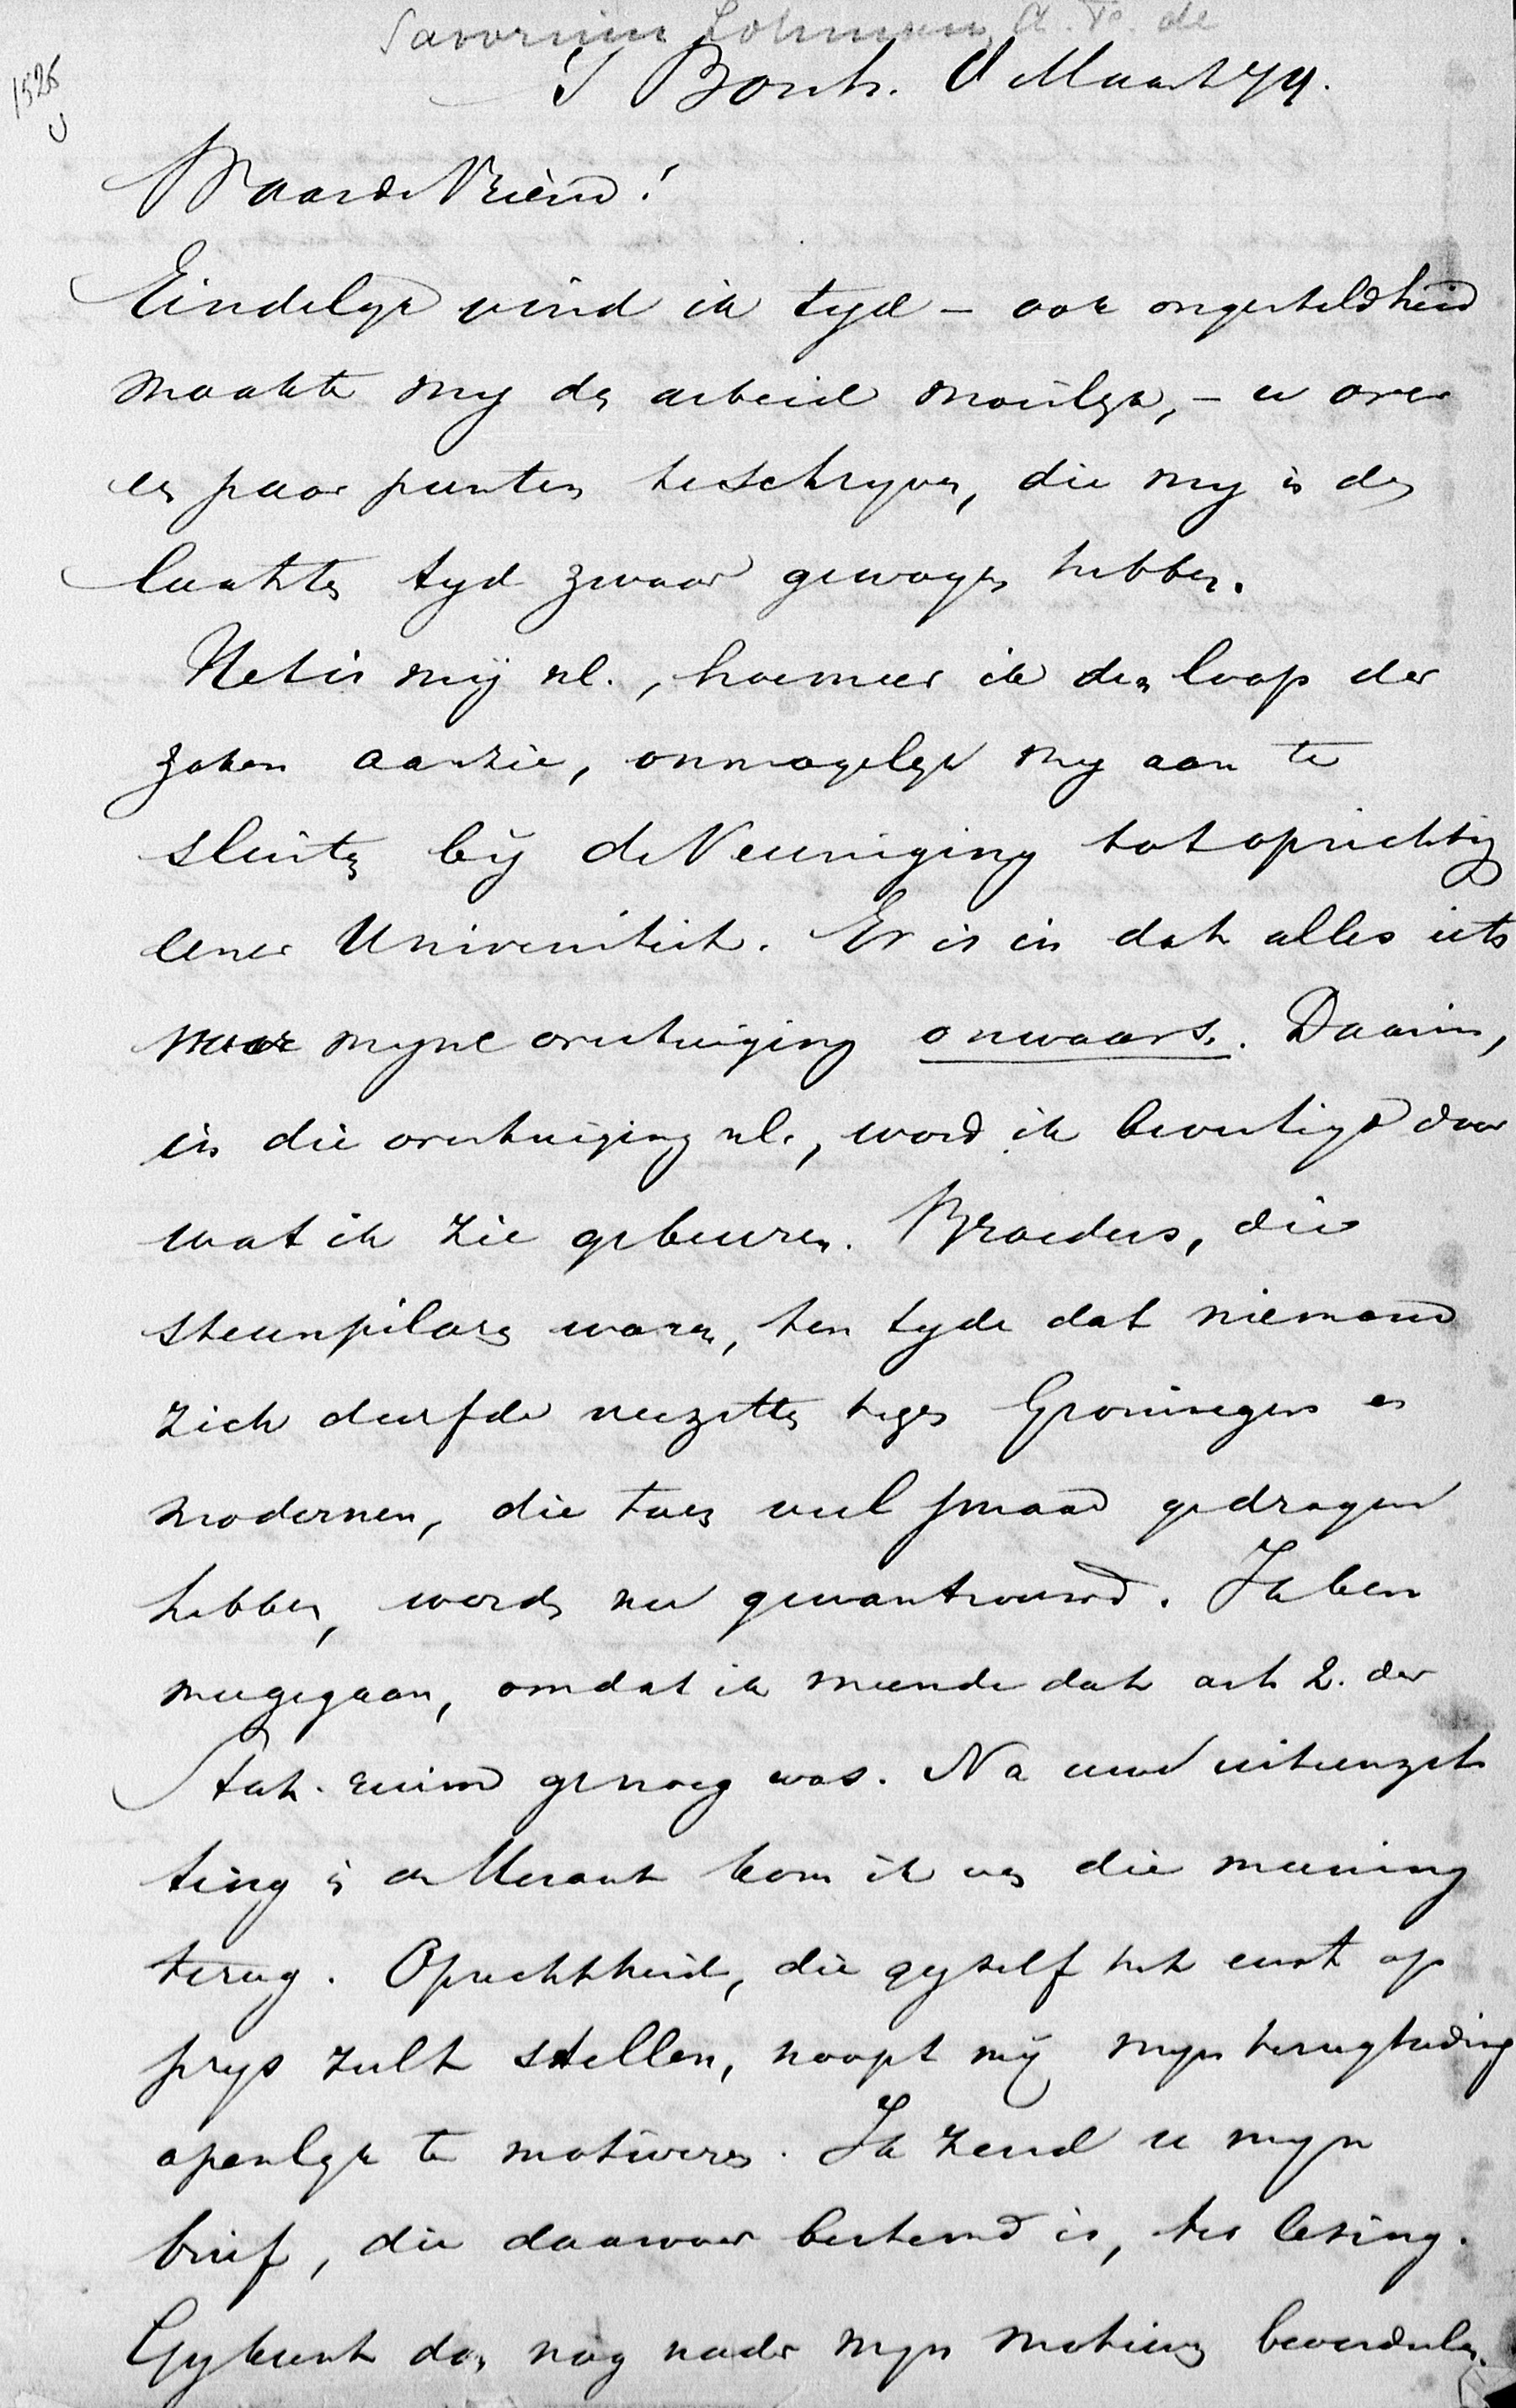 Savornin Lohman, A. F. de
1525
U
's Bosch. 8 Maart 79.
Waarde Vriend!
Eindelyk vind ik tyd – ook ongesteldheid
maakte my den arbeid moeilyk, – u over
een paar punten te schryven, die my in den
laatsten tyd zwaar gewogen hebben.
Het is mij nl., hoe meer ik den loop der
zaken aanzie, onmogelyk my aan te
sluiten bij de Vereeniging tot oprichting
eener Universiteit. Er is in dat alles iets
naar myne overtuiging onwaars. Daarin,
in die overtuiging nl., word ik bevestigd door
wat ik zie gebeuren. Broeders, die
steunpilaren waren, ten tyde dat niemand
zich durfde verzetten tegen Groningers en
modernen, die toen veel smaad gedragen
hebben, worden nu gewantrouwd. Ik ben
meegegaan, omdat ik meende dat art 2. der
Stat. ruim genoeg was. Na uwe uiteenzet
ting in de Heraut kom ik van die meening
terug. Oprechtheid, die gyzelf het eerst op
prys zult stellen, noopt mij myn terugtreding
openlyk te motiveren. Ik zend u myn
brief, die daarvoor bestemd is, ter lezing.
Gy kunt dan nog nader myn motieven beoordeelen.